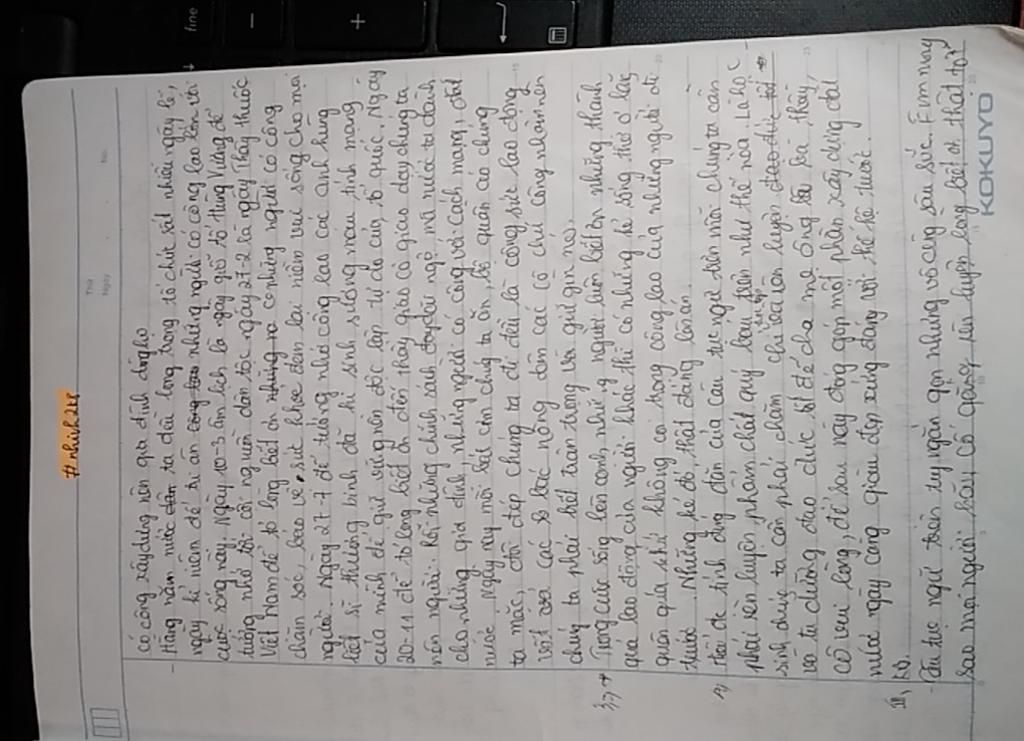 #nhinh2k8
Thứ
Ngày
No.
có công xây dựng nên gia đình dòng họ
- Hằng năm nước ta đều long trọng tổ chức rất nhiều ngày lễ,
ngày kỉ niệm để tri ân những người có công lao lớn với
cuộc sống này. Ngày 10-3 âm lịch là ngày giỗ tổ Hùng Vương để
tưởng nhớ tới cội nguồn dân tộc ngày 27-2 là ngày Thầy thuốc
Việt Nam để tỏ lòng biết ơn những người có công
chăm sóc, bảo vệ sức khỏe đem lại niềm vui sống cho mọi
người. Ngày 27-7 để tưởng nhớ công lao các anh hùng
liệt sĩ thương binh đã hi sinh xương máu, tính mạng
của mình để giữ vững nền độc lập tự do của tổ quốc. Ngày
20-11 để tỏ lòng biết ơn đến thầy giáo cô giáo dạy chúng ta
nên người. Rồi những chính sách đãi ngộ mà nước ta dành
cho những gia đình, những người có công với cách mạng, đất
nước. Ngày nay mỗi bát cơm chúng ta ăn, bộ quần áo chúng
ta mặc, đôi dép chúng ta đi đều là công sức lao động
của các bác nông dân các cô chú công nhân nên
chúng ta phải biết trân trọng và giữ gìn nó.
3, Trong cuộc sống bên cạnh, những người luôn biết ơn những thành
quả lao động của người khác thì có những kẻ sống thờ ơ lãng
quên quá khứ không coi trọng công lao của những người đi
trước. Những kẻ đó, thật đáng lên án.
Hiểu đc tính đúng đắn của câu tục ngữ trên mỗi chúng ta cần
phải rèn luyện phẩm chất quý báu trên như thế nào. Là học
sinh chúng ta cần phải chăm chỉ học tập rèn luyện
và tu dưỡng đạo đức tốt để cha mẹ ông bà thầy,
cô vui lòng, để sau này đóng góp một phần xây dựng đất
nước ngày càng giàu đẹp xứng đáng với thế hệ trước.
III, KB.
- Câu tục ngữ trên tuy ngắn gọn nhưng vô cùng sâu sắc. Em mong
sao mọi người hãy cố gắng rèn luyện lòng biết ơn thật tốt
KOKUYO
fine
+
-